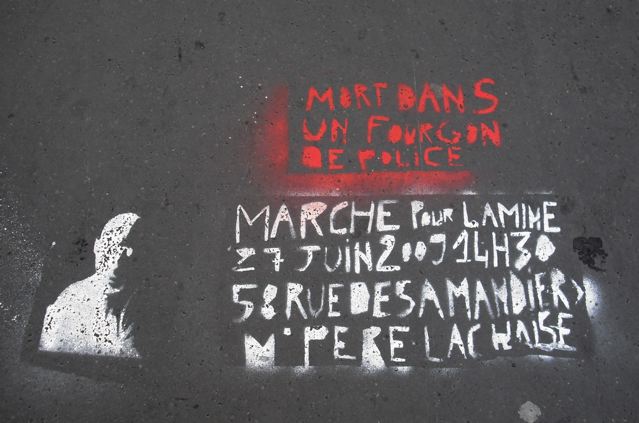 MORT DANS
UN FOURGON
DE POLICE
MARCHE POUR LAMINE
27 JUIN 2009 14H30
58 RUE DES AMANDIERS
M° PERE LACHAISE